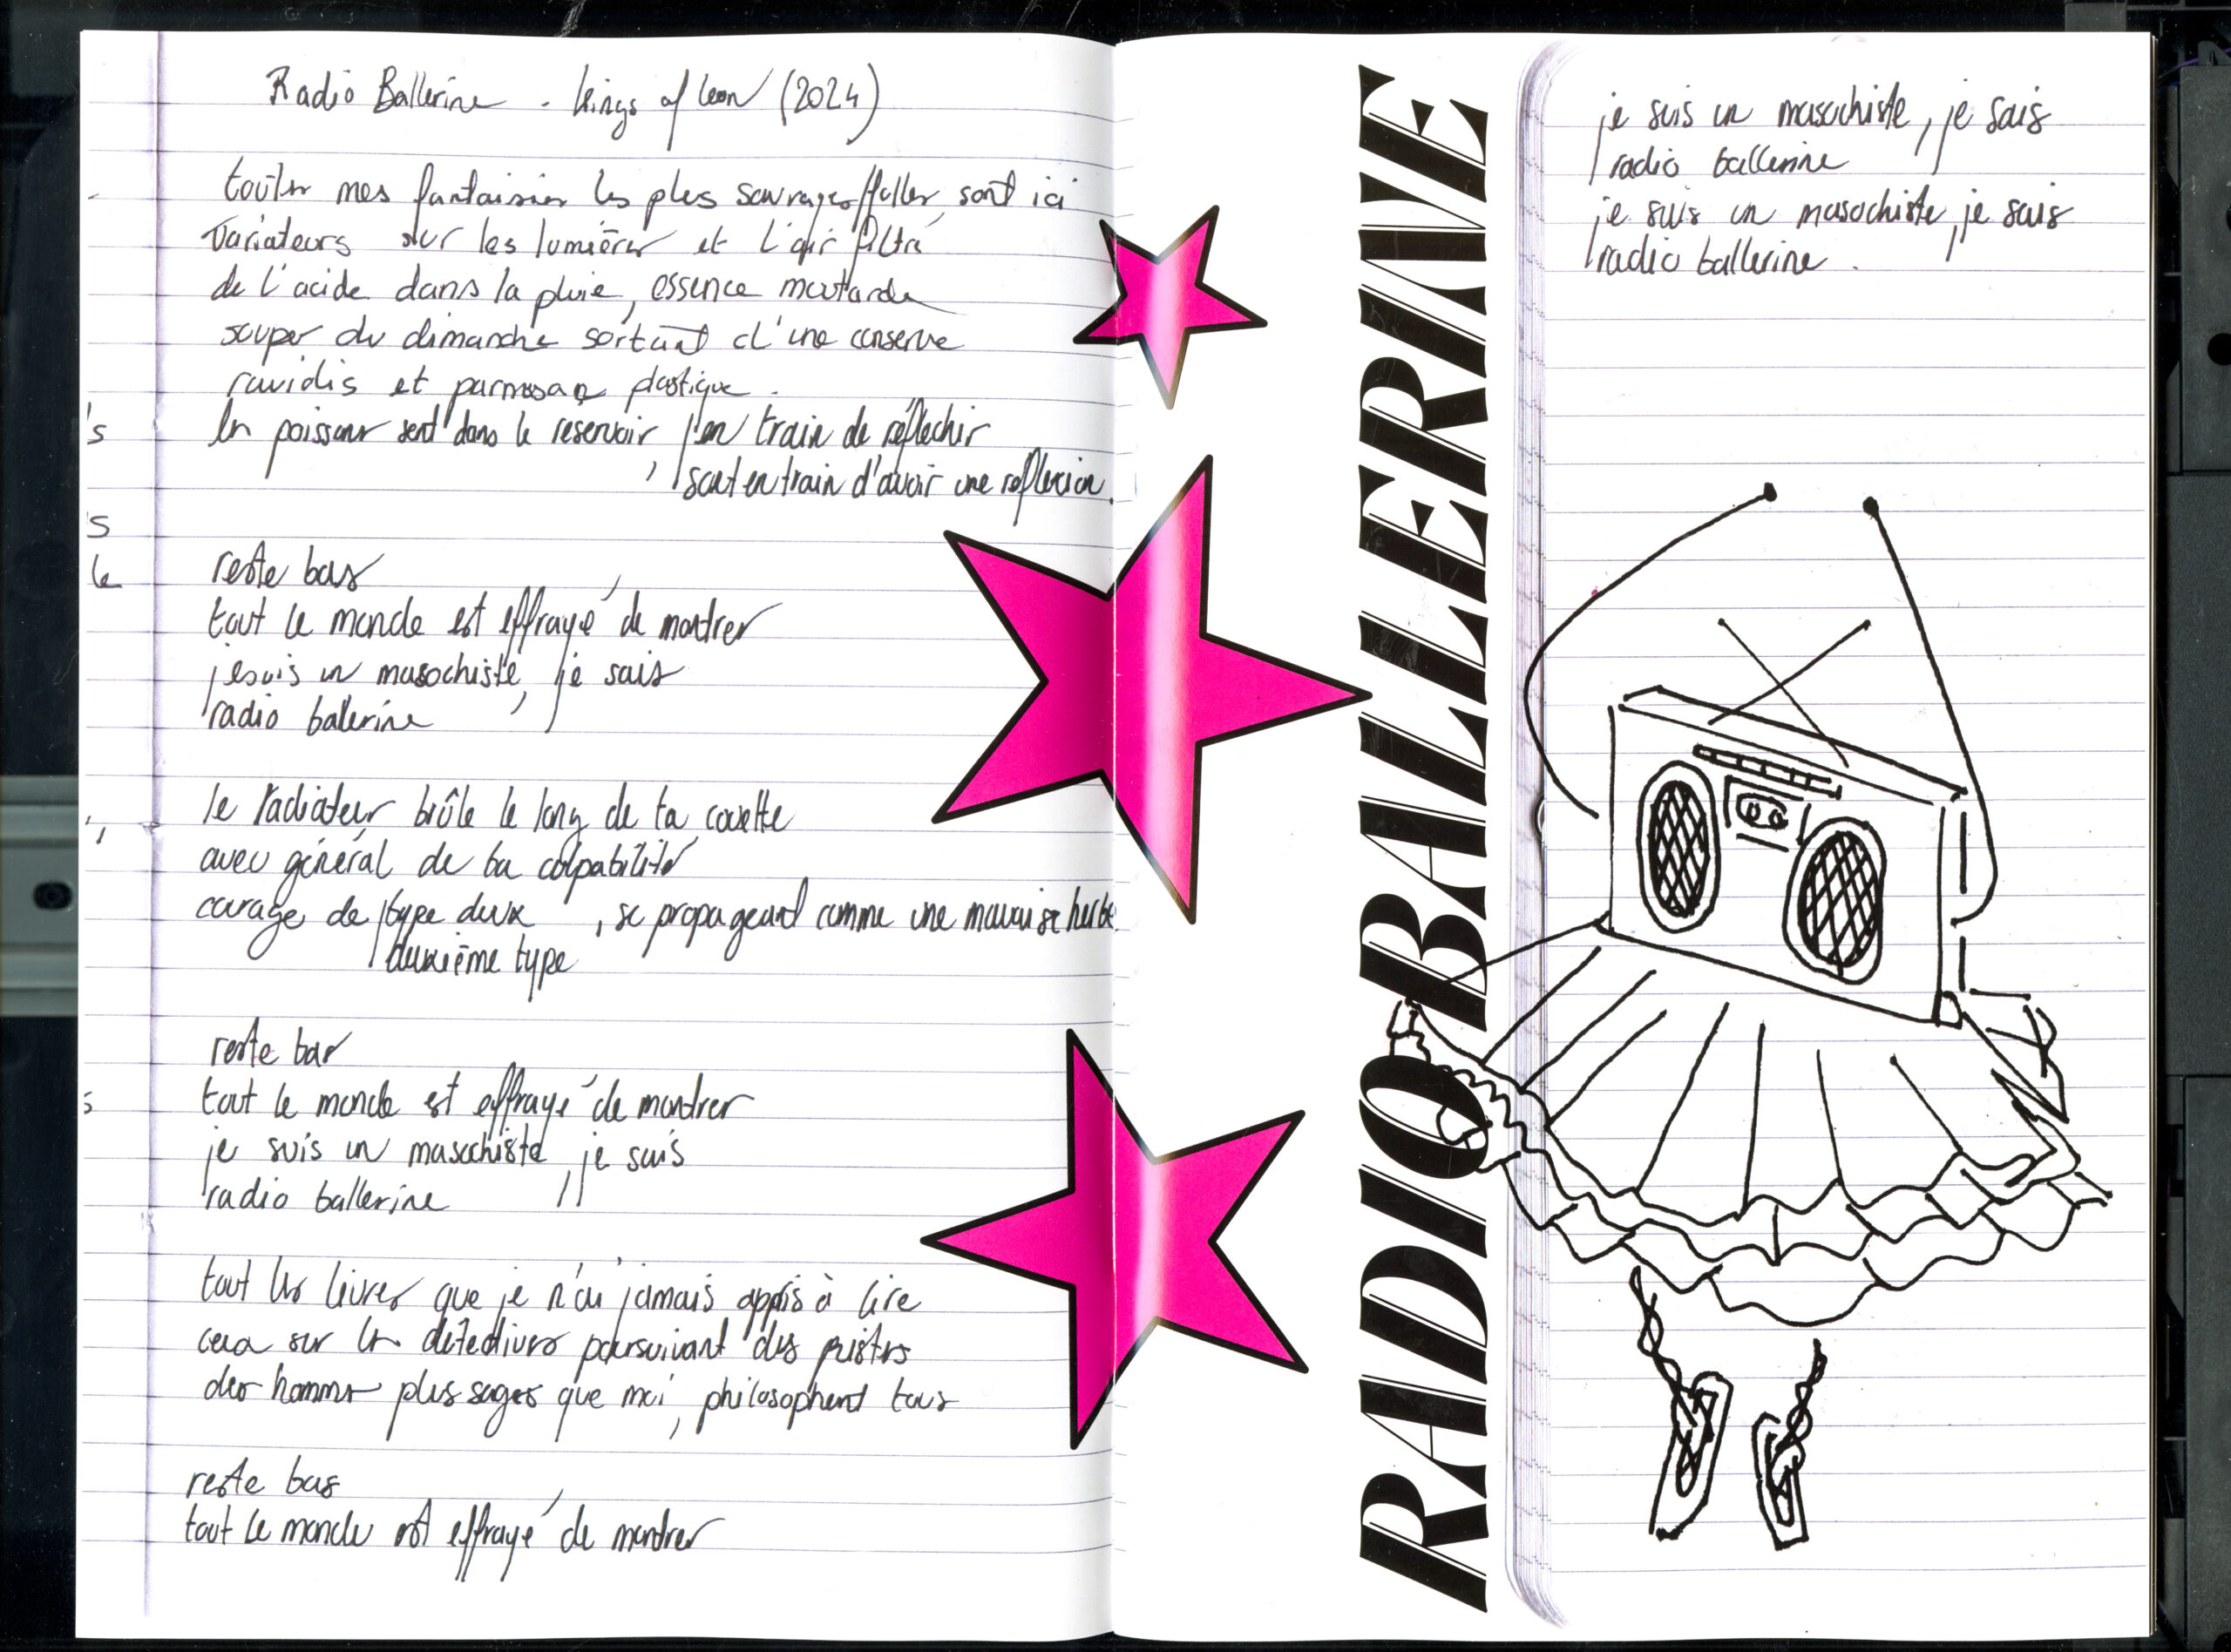 Radio Ballerine - kings of leon (2024)
toutes mes fantaisies les plus sauvages/folles sont ici
variateurs sur les lumières et l'air filtré
de l'acide dans la pluie, essence moutarde
souper du dimanche sortant d'une conserve
raviolis et parmesan plastique.
les poissons sont dans le reservoir, / en train de réflechir
, / sont en train d'avoir une reflexion.
's
s
le
reste bas
tout le monde est effrayé de montrer
je suis un masochiste, je sais
radio ballerine
le radiateur brûle le long de ta couette
avec général de ta culpabilité
courage de / type deux , se propageant comme une mauvaise herbe.
/ deuxième type
reste bas
tout le monde est effrayé de montrer
s
je suis un masochiste, je sais
radio ballerine
tout les livres que je n'ai jamais appris à lire
ceux sur les détectives poursuivant des
des hommes plus sages que moi, philosophent tous
reste bas
tout le monde est effrayé de montrer
RADIO BALLERINE
je suis un masochiste, je sais
radio ballerine
je suis un masochiste, je sais
radio ballerine.